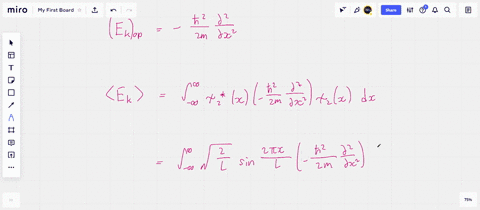 miro My First Board Share
[E_k]_op = - ħ²/2m ∂²/∂x²
⟨E_k⟩ = ∫_{-∞}^{∞} ψ₂*(x) (-ħ²/2m ∂²/∂x²) ψ₂(x) dx
= ∫_{-∞}^{∞} √(2/L) sin 2πx/L (-ħ²/2m ∂²/∂x²)
75%